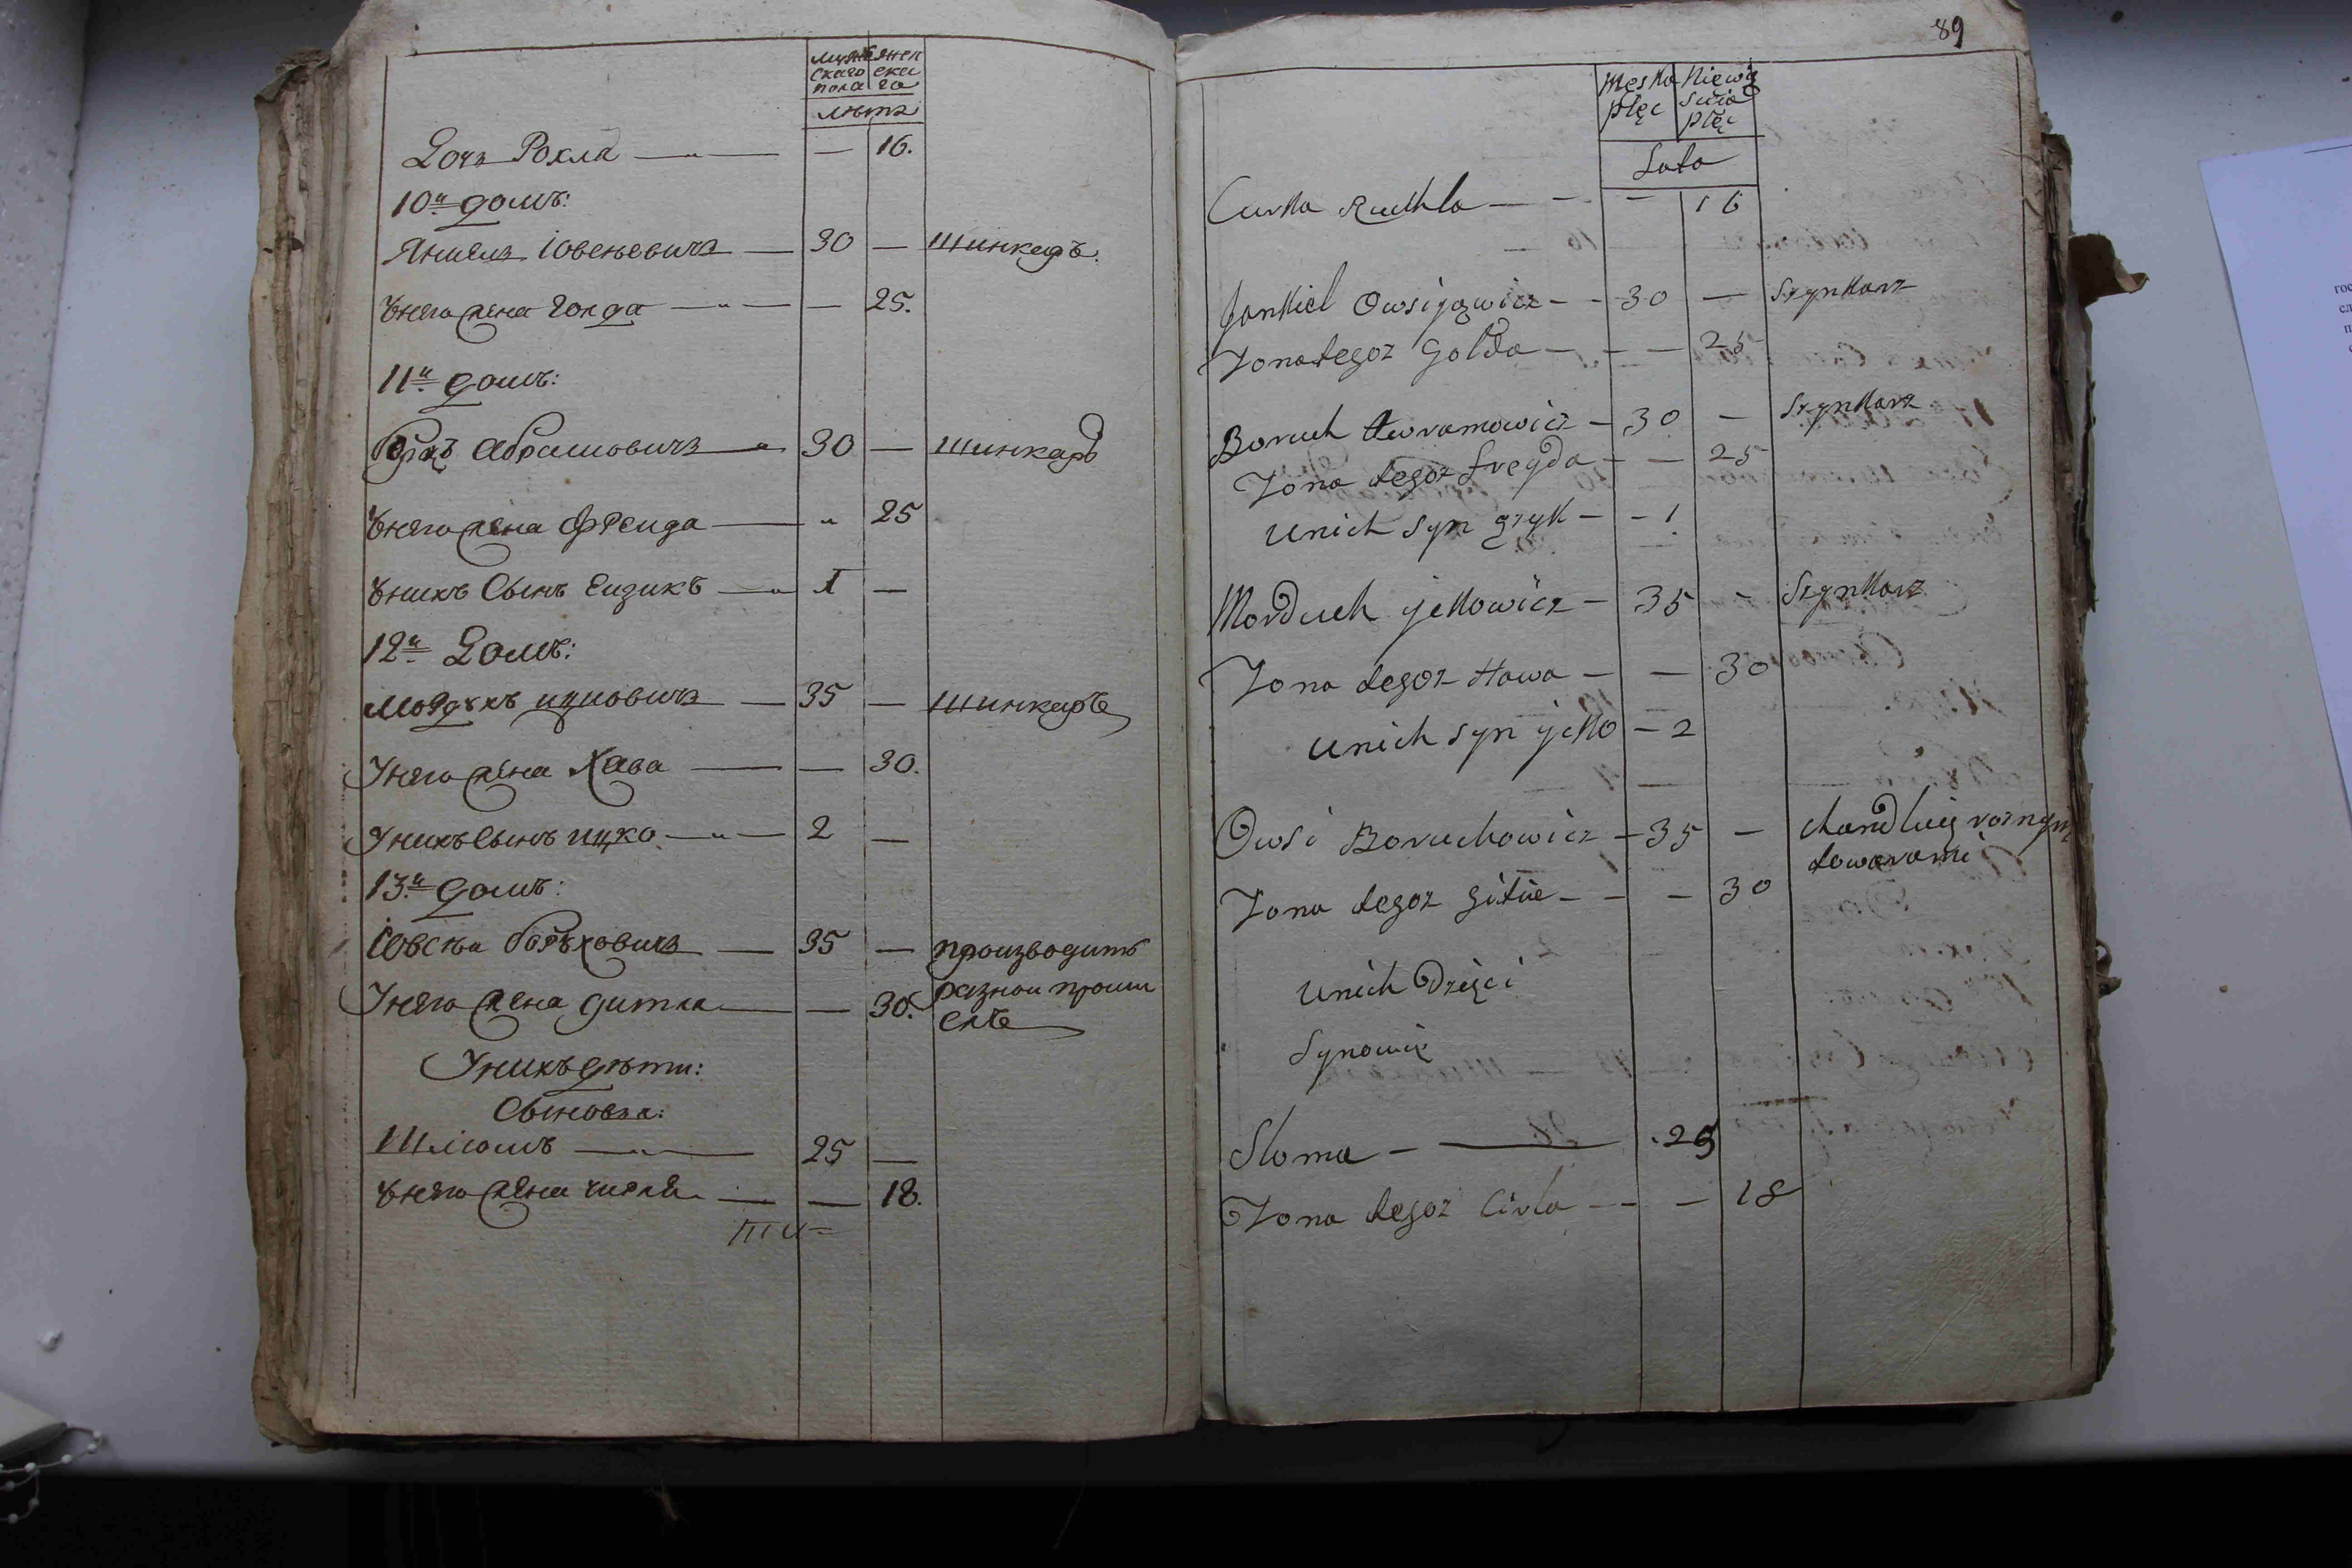 мужескаго пола
женскаго
лѣтъ
Дочь Рохла — 16.
10й домъ:
Янкель Іовсѣевичъ — 30 — шинкаръ.
ꙋнего жена Голда — — 25.
11й домъ:
Борꙋхъ Абрамовичъ — 30 — шинкаръ
ꙋнего жена Фреида — „ 25
ꙋнихъ Сынъ Еизикъ — 1 —
12й Домъ:
Мордꙋхъ ицковичъ — 35 — шинкаръ
Унего жена Хава — — 30.
Унихъ Сынъ ицко — 2 —
13й домъ:
Іовсѣи борꙋховичъ — 35 — производитъ
Унего жена гитля — — 30. разнои промы
селъ
Унихъ дѣти:
Сыновья:
Шліомъ — 25 —
ꙋнего жена цирля — — 18.
89
Męska płęc
Niewiescia płęc
Lata
Curka Ruchla — — — 16
Jankiel Owsijowicz — 30 — Szynkarz
Zona tegoz Golda — — — 25
Boruch Awramowicz — 30 — Szynkarz
Zona tegoz Freyda — — 25
unich syn Izyk — — 1
Morduch ickowicz — 35 - Szynkarz
Zona tegoz Hawa — — 30
unich syn icko — 2
Owsi Boruchowicz — 35 — chandluię roznymi
towarami
Zona tegoz Gitle — — — 30
unich Dzieci
Synowie
Sloma — 25
Zona tegoz Cirla — — 18